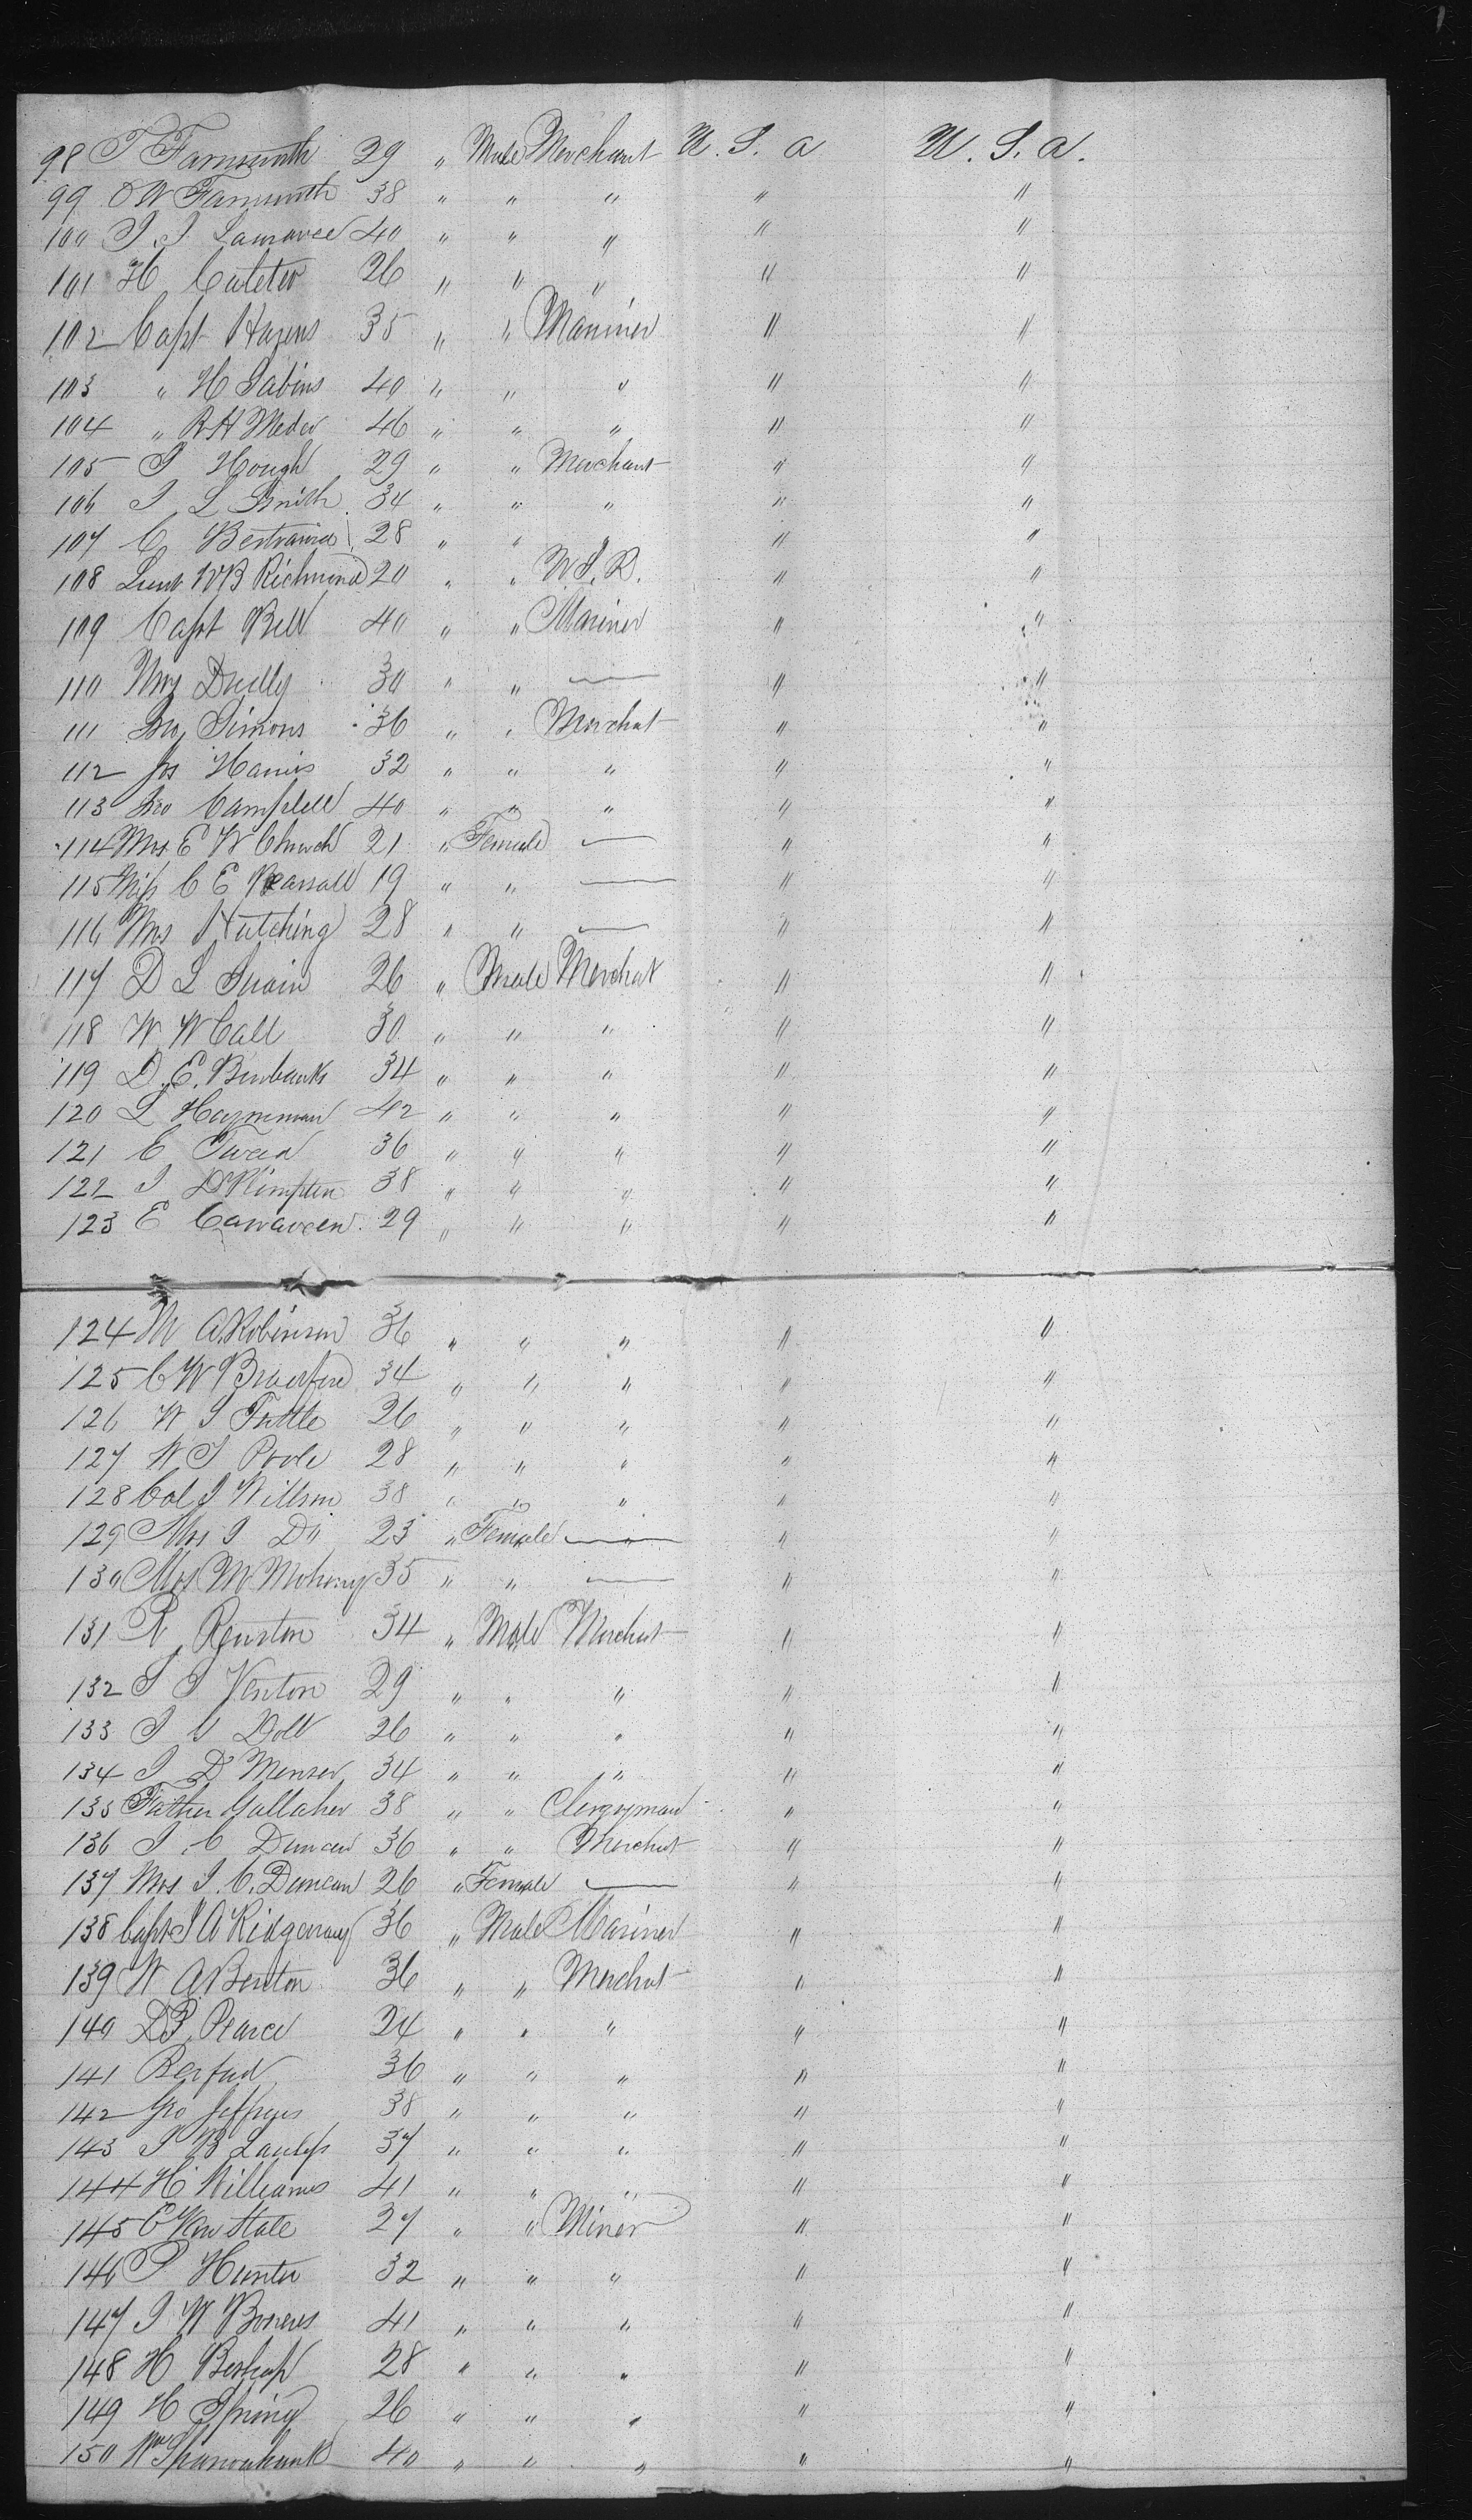 98 T Farnsworth 29 " Male Merchant U. S. a U. S. a.
99 O W Farnsworth 38 " " " " "
100 J. J. 40 " " " " "
101 H. 26 " " " " "
102 Capt Havens 35 " " Mariner " "
103 " H Sabins 40 " " " " "
104 " R H Meder 46 " " " " "
105 J Hough 29 " " Merchant " "
106 J. L Smith 34 " " " " "
107 C, 28 " " " " "
108 Lieut W B Richmond 20 " " " "
109 Capt Bell 40 " " Mariner " "
110 30 " " — " "
111 Jno, Simons 36 " " Merchat " "
112 Jos Harris 32 " " " " "
113 Jno Campbell 40 " " " " "
114 Mrs E W Church 21 " Female — " "
115 Miss C E Pearsall 19 " " — " "
116 Mrs Hutching 28 " " — " "
117 D L Swain 26 " Male Merchat " "
118 W. W Call 30 " " " " "
119 D. E. 34 " " " " "
120 L 42 " " " " "
121 E 36 " " " " "
122 J D Kimpton 38 " " " " "
123 E 29 " " " " "
124 M A Robinson 36 " " " " "
125 C W 34 " " " " "
126 W S Tuttle 26 " " " " "
127 W S Poole 28 " " " " "
128 Col J Willson 38 " " " " "
129 Mrs J Do 23 " Female — " "
130 Mrs M Mohony 35 " " — " "
131 R, 34 " Male Merchat " "
132 S S Venton 29 " " " " "
133 J 26 " " " " "
134 J D Menser 34 " " " " "
135 Father Gallaher 38 " " Clergyman " "
136 J. C Duncan 36 " " Merchat " "
137 Mrs J. C. Duncan 26 " Female — " "
138 Capt J A Ridgeway 36 " Male Mariner " "
139 W A Benton 36 " " Merchat " "
140 D P. Pearce 24 " " " " "
141 36 " " " " "
142 Geo Jeffreys 38 " " " " "
143 J B 37 " " " " "
144 H Williams 41 " " " " "
145 Van State 27 " " Miner " "
146 P Hunter 32 " " " " "
147 J W 41 " " " " "
148 H Bishop 28 " " " " "
149 H Spring 26 " " " " "
150 Wm 40 " " " " "